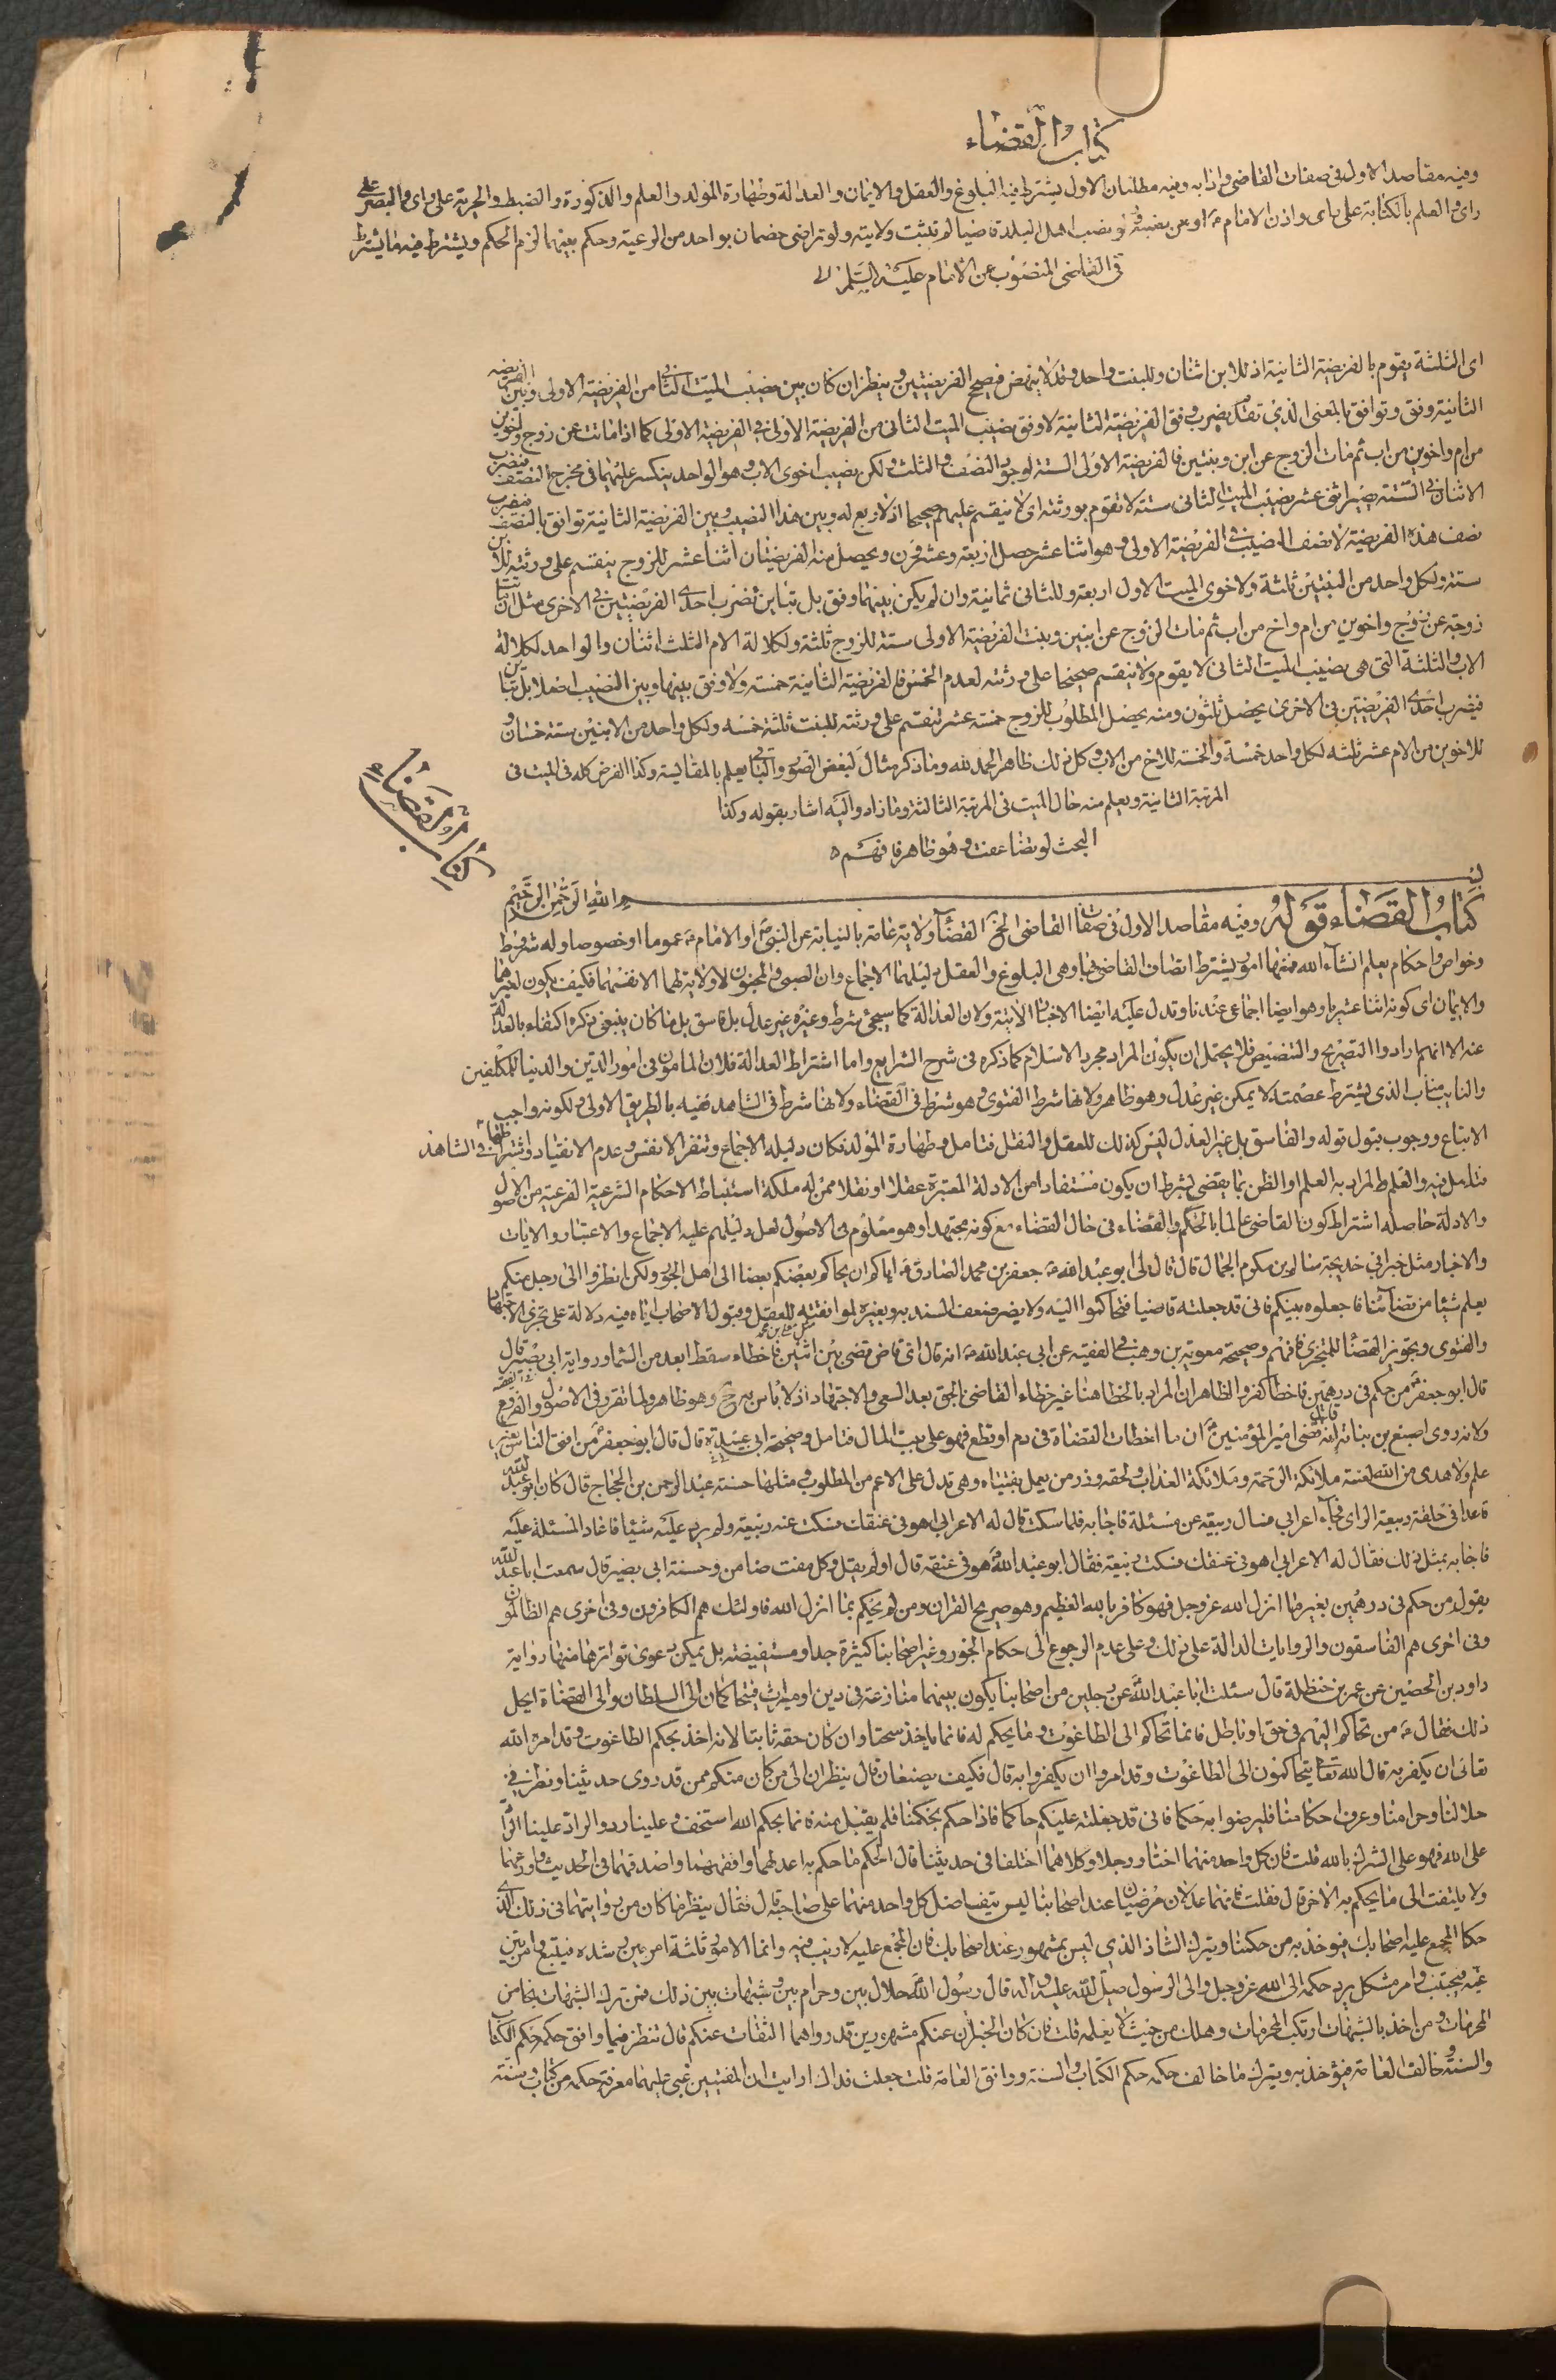 كتاب القضاء
وفيه مقاصد الاول في صفات القاضي وادابه وفيه مطلبان الاول يشترط فيه البلوغ والعقل والايمان والعدالة وطهارة المولد والعلم والذكورة والضبط والحرية على راى والبصر على
راى والعلم بالكتابة على راى واذن الامام ع او من نصبه ولو نصب اهل البلد قاضيا لم تثبت ولايته ولو تراضى خصمان بواحد من الرعية وحكم بينهما لزم الحكم ويشترط فيه ما يشترط
فى القاضى المنصوب عن الامام عليه السلم
اى الثلثة يقوم بالفريضة الثانية اذ للابن اثنان وللبنت واحد وقد لا ينهض فيصح الفريضتين وينظر ان كان بين نصيب الميت الثاني من الفريضة الاولى وبين الفريضه
الثانية وفق وتوافق بالمعنى الذى تقدم يضرب وفق الفريضة الثانية لا وفق نصيب الميت الثانى من الفريضة الاولى فى الفريضة الاولى كما اذا ماتت عن زوج واخوين
من ام واخوين من اب ثم مات الزوج عن ابن وبنتين فالفريضة الاولى الستة لوجود النصف والثلث ولكن نصيب اخوى الاب وهو الواحد ينكسر عليهما فى مخرج النصف فيضرب
الاثنان فى الستة يصير اثنى عشر نصيب الميت الثانى ستة لا تقوم بورثته اى لا ينقسم عليهم صحيحا اذ لا ربع له وبين هذا النصيب وبين الفريضة الثانية توافق بالنصف فيضرب
نصف هذه الفريضة لا نصف النصيب فى الفريضة الاولى وهو اثنا عشر حصل اربعة وعشرون ويحصل منه الفريضتان اثنا عشر للزوج ينقسم على ورثته للابن
ستة ولكل واحد من البنتين ثلثة ولاخوى الميت الاول اربعة وللثانى ثمانية وان لم يكن بينهما وفق بل تباين فضرب احدى الفريضتين فى الاخرى مثل ان ماتت
زوجة عن زوج واخوين من ام واخ من اب ثم مات الزوج عن ابنين وبنت الفريضة الاولى ستة للزوج ثلثة ولكلالة الام الثلث اثنان والواحد لكلالة
الاب والثلثة التى هى نصيب الميت الثانى لا يقوم ولا ينقسم صحيحا على ورثته لعدم الخمس فالفريضة الثانية خمسة ولا وفق بينها وبين النصيب اصلا بل تباين
فيضرب احدى الفريضتين فى الاخرى يحصل ثلثون ومنه يحصل المطلوب للزوج خمسة عشر تنقسم على ورثته للبنت ثلثة خمسه ولكل واحد من الابنين ستة خمسان و
للاخوين من الام عشر ثلثه لكل واحد خمسة والخمسة للاخ من الاب وكل ذلك ظاهر الحمد لله وما ذكر مثال لبعض الصور والباقى يعلم بالمقايسة وكذا الفرض كله فى الميت فى
المرتبة الثانية ويعلم منه حال الميت فى المرتبة الثالثة وما زاد واليه اشار بقوله وكذا
البحث لو تضاعفت وهو ظاهر فافهم
كتاب القضاء
بسم الله الرحمن الرحيم
كتاب القضاء قوله وفيه مقاصد الاول فى صفات القاضى الخ القضاء ولاية عامة بالنيابة عن النبى ص او الامام ع عموما او خصوصا وله شروط
وخواص واحكام يعلم انشاء الله فمنها امور يشترط اتصاف القاضى بها وهى البلوغ والعقل دليلهما الاجماع وان الصبى والمجنون لا ولاية لهما لانفسهما فكيف يكون لغيرهما
والايمان اى كونه اثنا عشريا وهو ايضا اجماعى عندنا وتدل عليه ايضا الاخبار الاتية ولان العدالة كما سيجئ شرط وغيره غير عدل بل فاسق بل ما كان ينبغى ذكره اكتفاء بالعدالة
عنه الا انهم ارادوا التصريح والتنصيص فلا يحتمل ان يكون المراد مجرد الاسلام كما ذكره فى شرح الشرايع واما اشتراط العدالة فلان المامون فى امور الدين والدنيا للمكلفين
والنايب مناب الذى يشترط عصمته لا يمكن غير عدل وهو ظاهر ولانها شرط الفتوى وهو شرط فى القضاء ولانها شرط فى الشاهد ففيه بالطريق الاولى ولكونه واجب
الاتباع ووجوب قبول قوله والفاسق بل غير العدل ليس كذلك للعقل والنقل فتامل وطهارة المولد فكان دليله الاجماع وتنفر الانفس وعدم الانقياد واشتراطها فى الشاهد
فتامل فيه والعلم المراد به العلم او الظن بما يقضى بشرط ان يكون مستفادا من الادلة المعتبرة عقلا او نقلا ممن له ملكة استنباط الاحكام الشرعية الفرعية من الاصول
والادلة حاصله اشتراط كون القاضى عالما بالحكم والقضاء فى حال القضاء مع كونه مجتهدا وهو معلوم فى الاصول لعل دليلهم عليه الاجماع والاعتبار والايات
والاخبار مثل خبر ابى خديجة سالم بن مكرم الجمال قال قال لى ابو عبد الله ع جعفر بن محمد الصادق ع اياكم ان يحاكم بعضكم بعضا الى اهل الجور ولكن انظروا الى رجل منكم
يعلم شيئا من قضائنا فاجعلوه بينكم فانى قد جعلته قاضيا فتحاكموا اليه ولا يضر ضعف السند به وبغيره لموافقته للعقل وقبول الاصحاب اياه فيه دلالة على تجزى الاجتهاد
والفتوى وتجويز القضاء للمتجزى فافهم وصحيحة معوية بن وهب فى الفقيه عن ابى عبد الله ع انه قال اى قاض قضى بين اثنين فاخطاء سقط ابعد من السماء ورواية ابى بصير قال
قال ابو جعفر من حكم فى درهمين فاخطا كفر والظاهر ان المراد بالخطا هنا غير خطاء القاضى الحق بعد السعى والاجتهاد اذ لا باس به ح وهو ظاهر ولما تقرر فى الاصول والفروع
ولانه روى اصبغ بن نباتة انه قضى امير المؤمنين ع ان ما اخطات القضاة فى دم او قطع فهو على بيت المال فتامل وصحيحة ابى عبيدة قال قال ابو جعفر من افتى الناس بغير
علم ولا هدى من الله لعنته ملائكة الرحمة وملائكة العذاب ولحقه وزر من يعمل بفتياه وهى تدل على الاعم من المطلوب ومثلها حسنة عبد الرحمن بن الحجاج قال كان ابو عبد الله
قاعدا فى حلقة ربيعة الراى فجاء اعرابى فسال ربيعة عن مسئلة فاجابه فلما سكت قال له الاعرابى اهو فى عنقك فسكت عنه ربيعة ولم يرد عليه شيئا فاعاد المسئلة عليه
فاجابه بمثل ذلك فقال له الاعرابى اهو فى عنقك فسكت ربيعة فقال ابو عبد الله هو فى عنقه قال اولم يقل وكل مفت ضامن وحسنة ابى بصير قال سمعت ابا عبد الله
يقول من حكم فى درهمين بغير ما انزل الله عز وجل فهو كافر بالله العظيم وهو صريح القران ومن لم يحكم بما انزل الله فاولئك هم الكافرون وفى اخرى هم الظالمون
وفى اخرى هم الفاسقون والروايات الدالة على ذلك وعلى عدم الرجوع الى حكام الجور وغير اصحابنا كثيرة جدا ومستفيضة بل يمكن دعوى تواترها منها رواية
داود بن الحصين عن عمر بن حنظلة قال سئلت ابا عبد الله عن رجلين من اصحابنا يكون بينهما منازعة فى دين او ميراث فيتحاكمان الى السلطان والى القضاة ايحل
ذلك فقال ع من تحاكم اليهم فى حق او باطل فانما تحاكم الى الطاغوت وما يحكم له فانما ياخذ سحتا وان كان حقه ثابتا لانه اخذ بحكم الطاغوت وقد امر الله
تعالى ان يكفر به قال الله تعالى يتحاكمون الى الطاغوت وقد امروا ان يكفروا به قال فكيف يصنعان قال ينظران الى من كان منكم ممن قد روى حديثنا ونظر فى
حلالنا وحرامنا وعرف احكامنا فليرضوا به حكما فانى قد جعلته عليكم حاكما فاذا حكم بحكمنا فلم يقبل منه فانما بحكم الله استخف وعلينا رد والراد علينا الراد
على الله فهو على الشرك بالله قلت فان كل واحد منهما اختار رجلا وكلاهما اختلفا فى حديثنا قال الحكم ما حكم به اعدلهما وافقههما واصدقهما فى الحديث واورعهما
ولا يلتفت الى ما يحكم به الاخر قال فقلت فانهما عدلان مرضيان عند اصحابنا ليس يتفاضل كل واحد منهما على صاحبه قال فقال ينظر ما كان من روايتهما فى ذلك الذى
حكما المجمع عليه اصحابك فيؤخذ به من حكمنا ويترك الشاذ الذي ليس بمشهور عند اصحابك فان المجمع عليه لا ريب فيه وانما الامور ثلثة امر بين رشده فيتبع وامر بين
غيه فيجتنب وامر مشكل يرد حكمه الى الله عز وجل والى الرسول صلى الله عليه واله قال رسول الله حلال بين وحرام بين وشبهات بين ذلك فمن ترك الشبهات نجا من
المحرمات ومن اخذ بالشبهات ارتكب المحرمات وهلك من حيث لا يعلم قلت فان كان الخبران عنكم مشهورين قد رواهما الثقات عنكم قال تنظر فيما وافق حكمه حكم الكتاب
والسنة وخالف العامة فيؤخذ به ويترك ما خالف حكمه حكم الكتاب والسنة ووافق العامة قلت جعلت فداك ارايت ان المفتيين غبى عليهما معرفة حكمه من كتاب وسنة